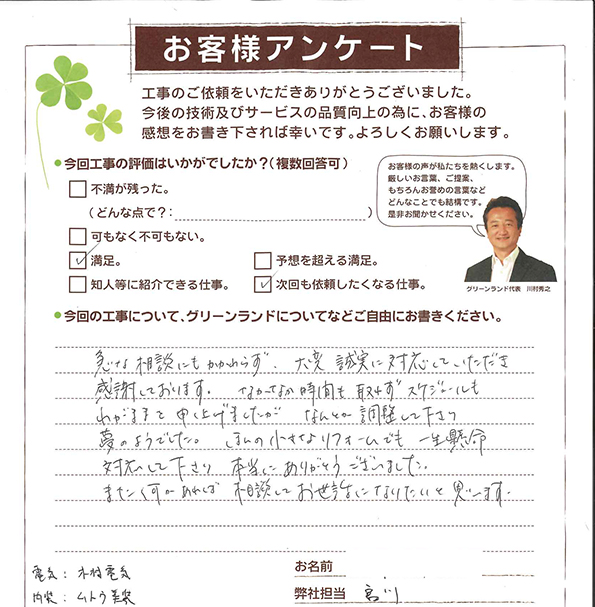 お客様アンケート
工事のご依頼をいただきありがとうございました。
今後の技術及びサービスの品質向上の為に、お客様の
感想をお書き下されば幸いです。よろしくお願いします。
●今回工事の評価はいかがでしたか?(複数回答可)
不満が残った。
(どんな点で?: )
可もなく不可もない。
満足。
予想を超える満足。
知人等に紹介できる仕事。
次回も依頼したくなる仕事。
お客様の声が私たちを熱くします。
厳しいお言葉、ご提案、
もちろんお誉めの言葉など
どんなことでも結構です。
是非お聞かせください。
グリーンランド代表 川村秀之
●今回の工事について、グリーンランドについてなどご自由にお書きください。
急な相談にもかかわらず、大変誠実に対応していただき
感謝しております。なかなか時間も取れずスケジュールも
わがままを申し上げましたが なんとか調整して下さり
夢のようでした。ほんの小さなリフォームでも一生懸命
対応して下さり 本当にありがとうございました。
また何かあれば 相談してお世話になりたいと思います。
お名前
電気:木村電気
弊社担当 宮川
内装:ムトウ美装